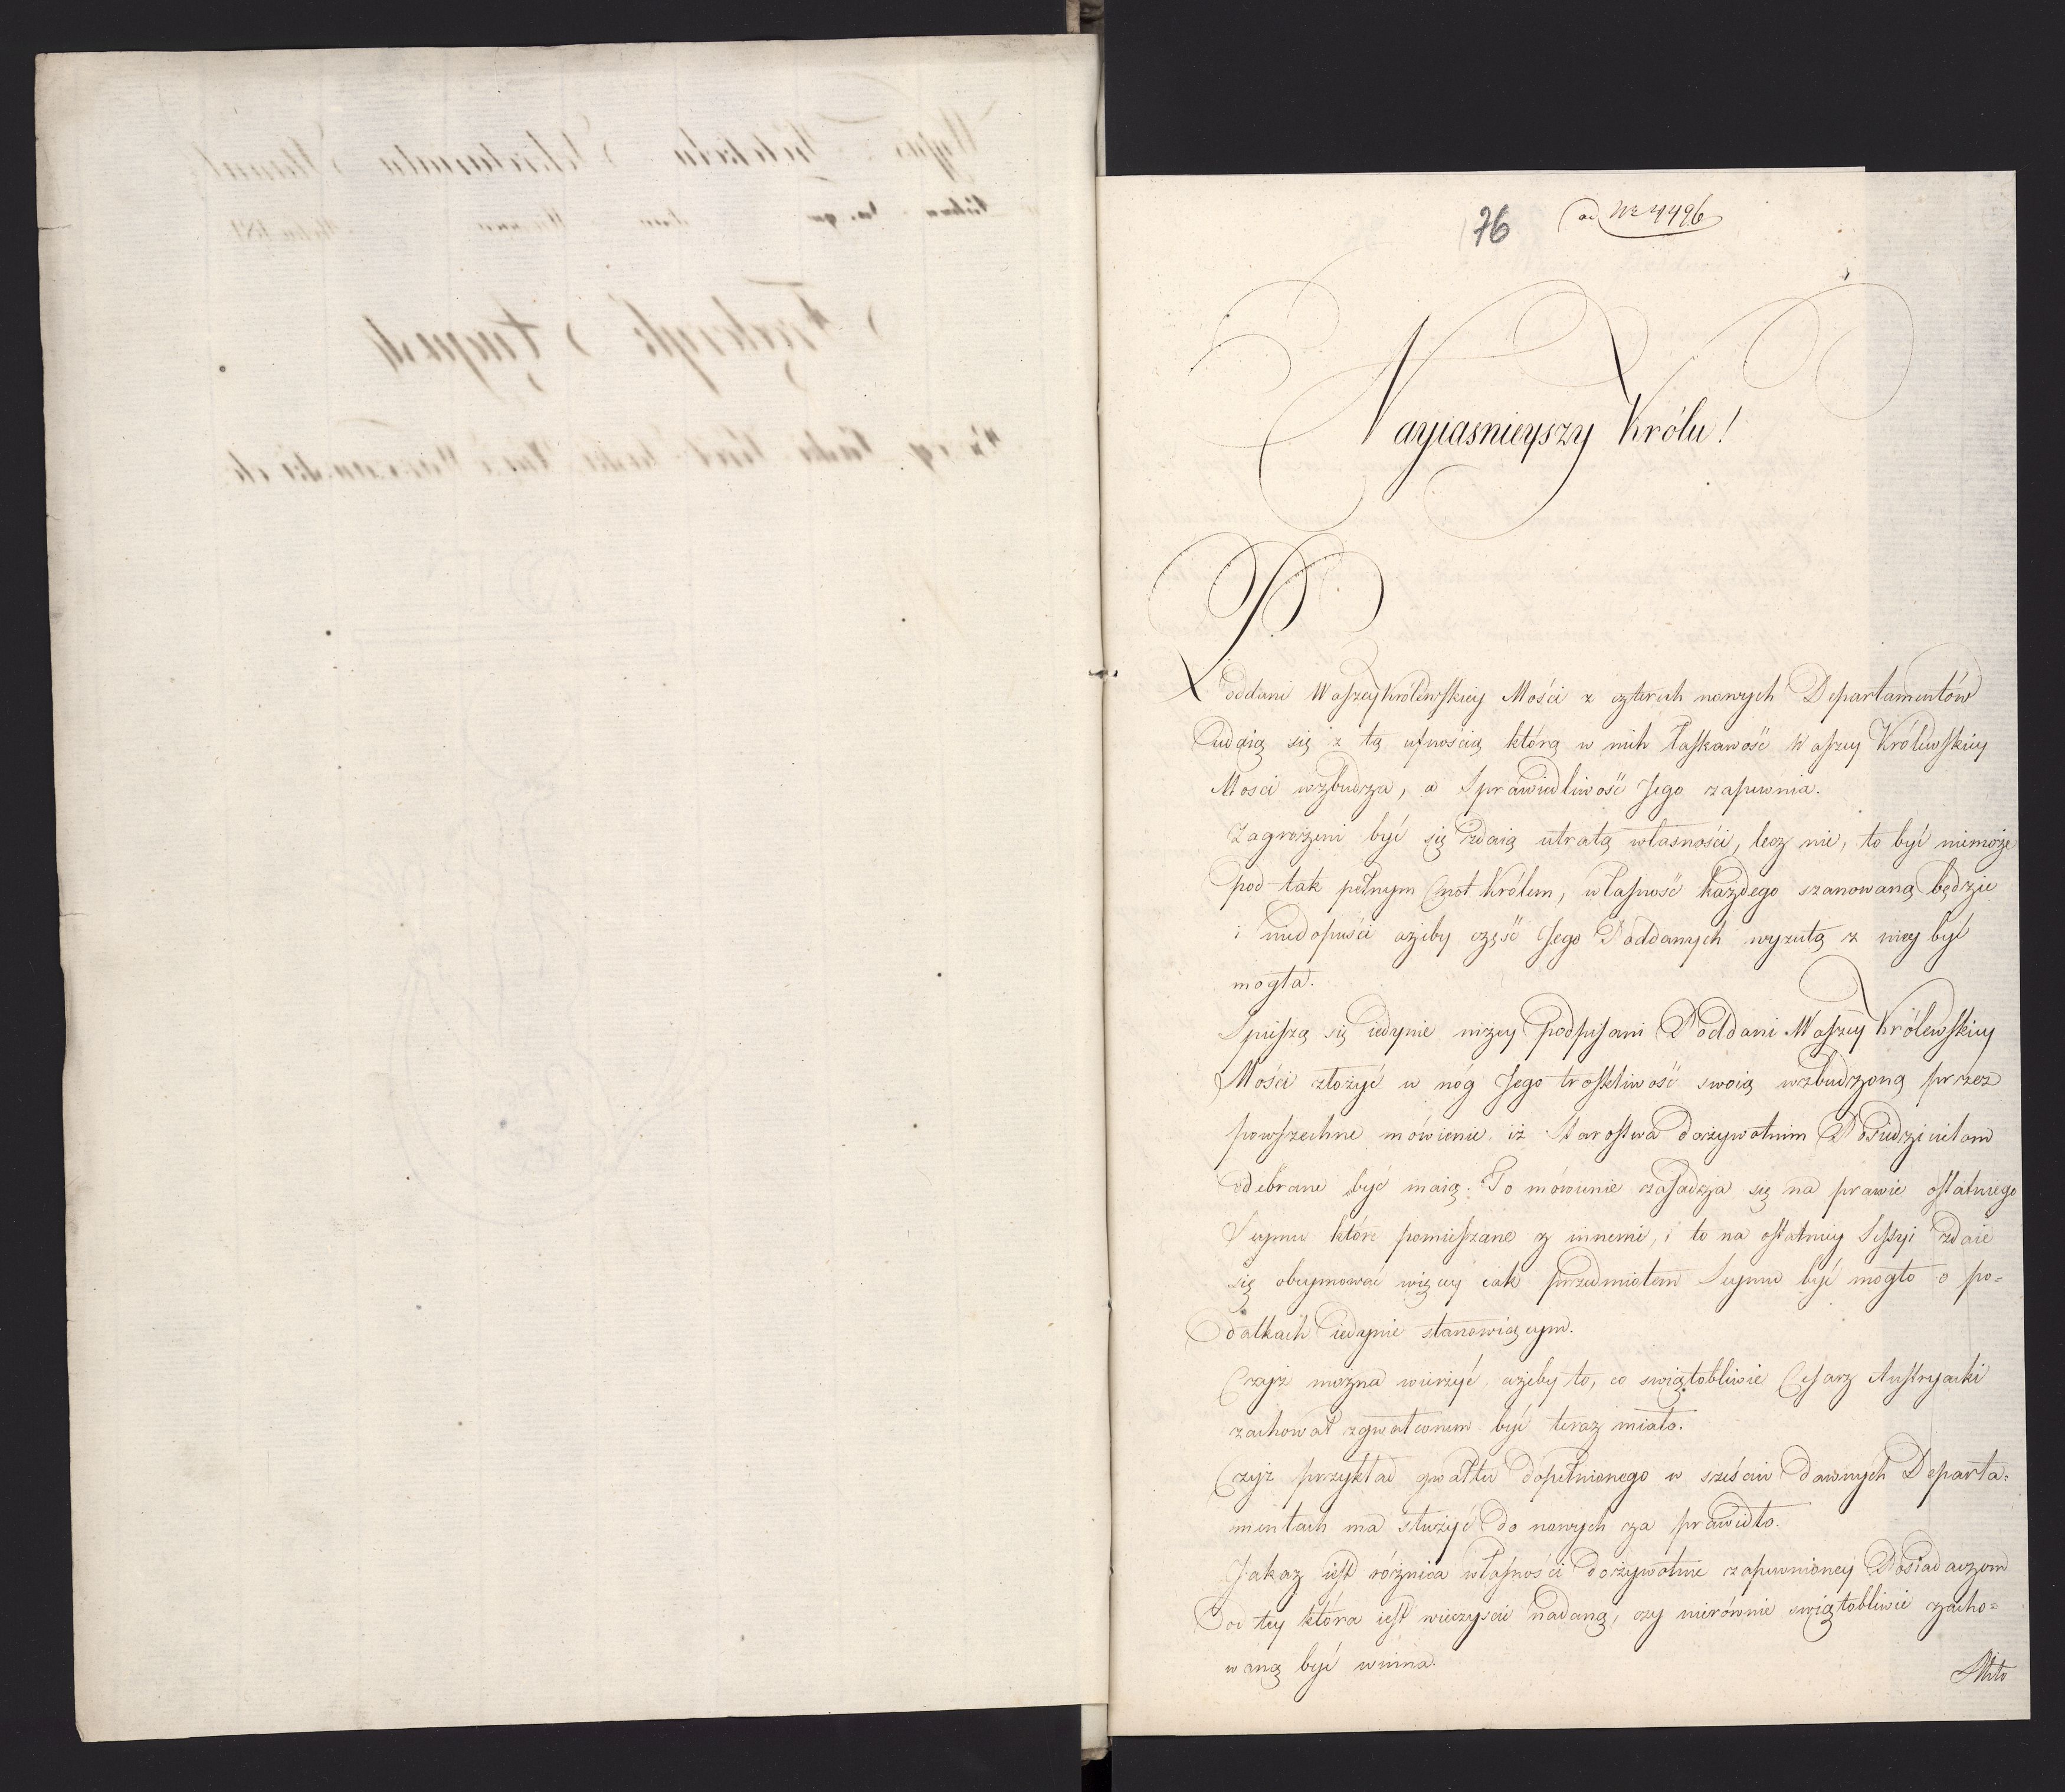 76 ad Nr 4496
Nayiasnieyszy Królu!
Poddani Waszey Królewskiey Mości z czterech nowych Departamentów
udaią się z tą ufnością którą w nich łaskawość Waszey Królewskiey
Mosci wzbudza, a Sprawiedliwość Jego zapewnia.
Zagrożeni być się zdaią utratą własności, lecz nie, to być niemoże
pod tak pełnym Cnot Królem, własność każdego szanowaną będzie
i niedopuści ażeby część Jego Poddanych wyzutą z niey być
mogła.
Spieszą się iedynie nizey podpisani Poddani Waszey Królewskiey
Mości złożyć u nóg Jego troskliwość swoią wzbudzoną przez
powszechne mówienie iż Starostwa dożywotnim Posiedzicielom
odebrane być maią. To mówienie zasadza się na prawie ostatniego
Seymu które pomieszane z innemi, i to na ostatniey Sessyi zdaie
się obeymować więcey iak przedmiotem Seymu być mogło o po=
datkach iedynie stanowiącym.
Czyż można wierzyć ażeby to, co swiątobliwie Cesarz Austryacki
zachował zgwałconem być teraz miało.
Czyż przykład gwałtu dopełnionego w sześciu dawnych Departa=
mentach ma służyć do nowych za prawidło.
Jakaz iest różnica własności dożywotnie zapewnioney Posiadaczom
od tey która iest wieczyscie nadaną, czy nierównie swiątobliwie zacho=
waną być winna.